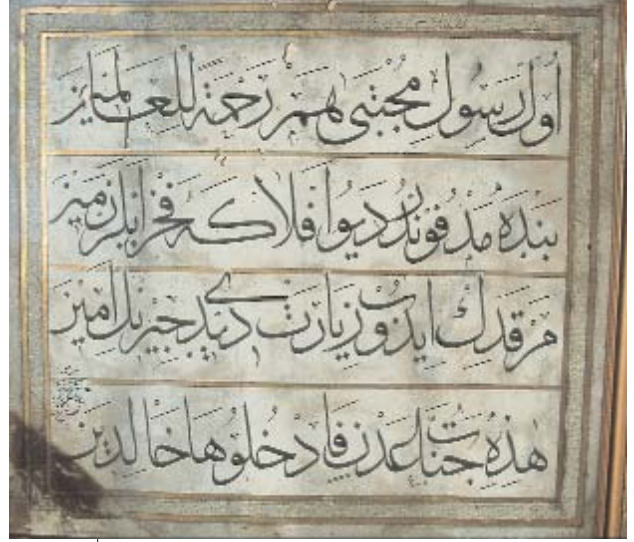 اول رسول مجتبى هم رحمة للعالمين
بنده مدفوندر ديو افلاكه فخر ايلر زمين
مرقدك ايدوب زيارت ديدى جبريل امين
هذه جنات عدن فادخلوها خالدين